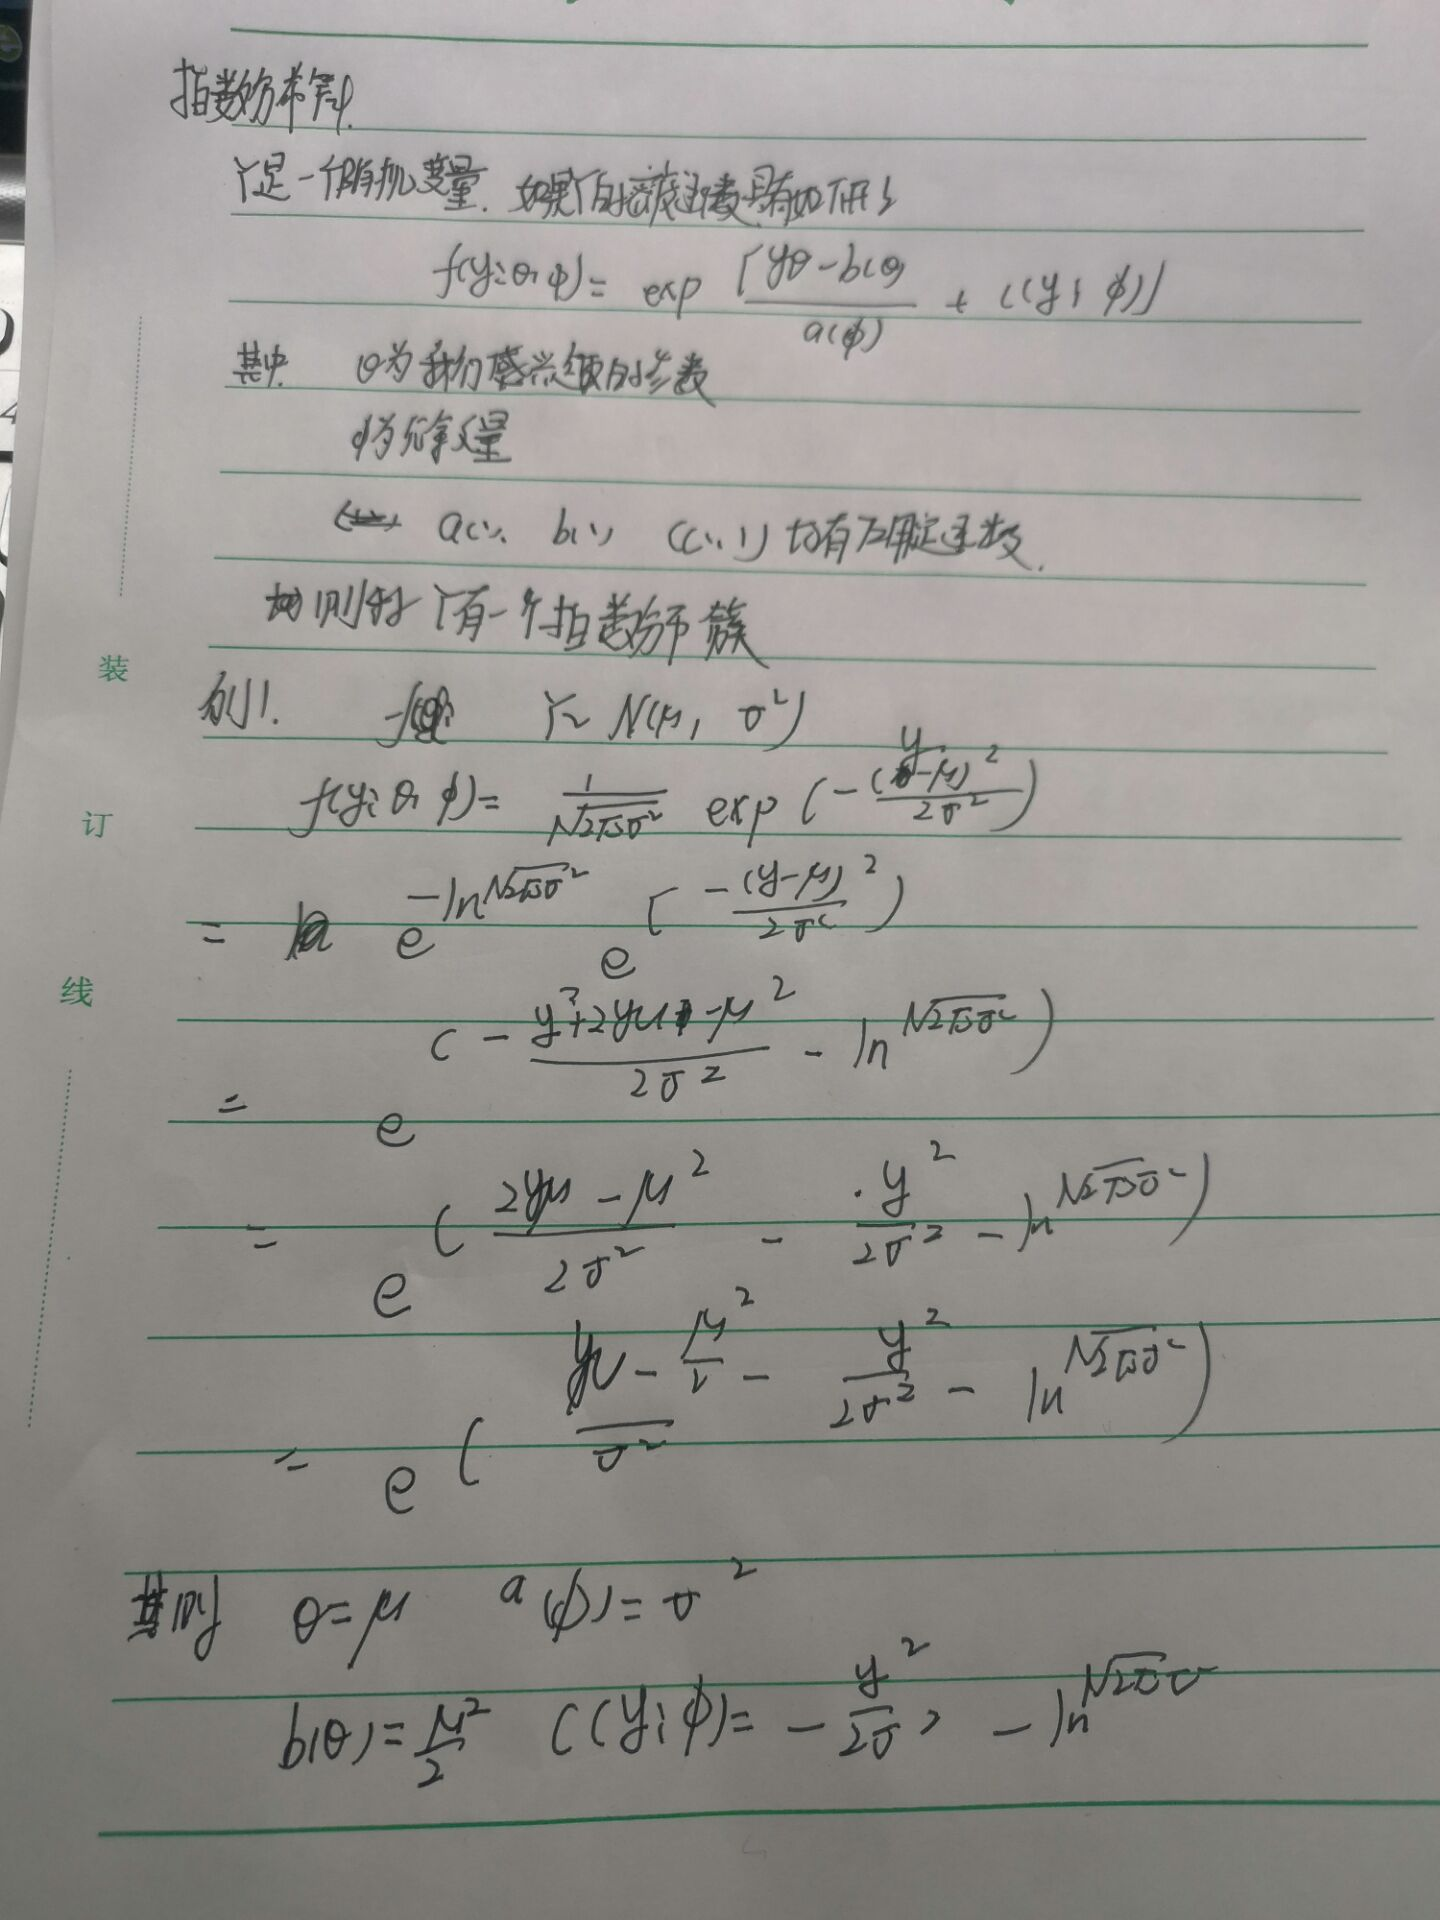 指数分布簇
Y是一个随机变量. 如果Y的密度函数具有如下形式
f(y; θ, φ) = exp [ (yθ - b(θ)) / a(φ) + c(y; φ) ]
其中 θ为我们感兴趣的参数
φ为冗余变量
a(·), b(·), c(·,·) 均有
则 Y有一个指数分布簇
例1. Y ~ N(μ, σ²)
f(y; θ, φ) = 1/√(2πσ²) exp ( - (y-μ)² / 2σ² )
= e^(-ln√(2πσ²)) e^( -(y-μ)² / 2σ² )
= e^( (- y² + 2yμ - μ²) / 2σ² - ln√(2πσ²) )
= e^( (2yμ - μ²) / 2σ² - y² / 2σ² - ln√(2πσ²) )
= e^( (yμ - μ²/2) / σ² - y² / 2σ² - ln√(2πσ²) )
则 θ = μ a(φ) = σ²
b(θ) = μ²/2 c(y; φ) = - y² / 2σ² - ln√(2πσ)
装
订
线